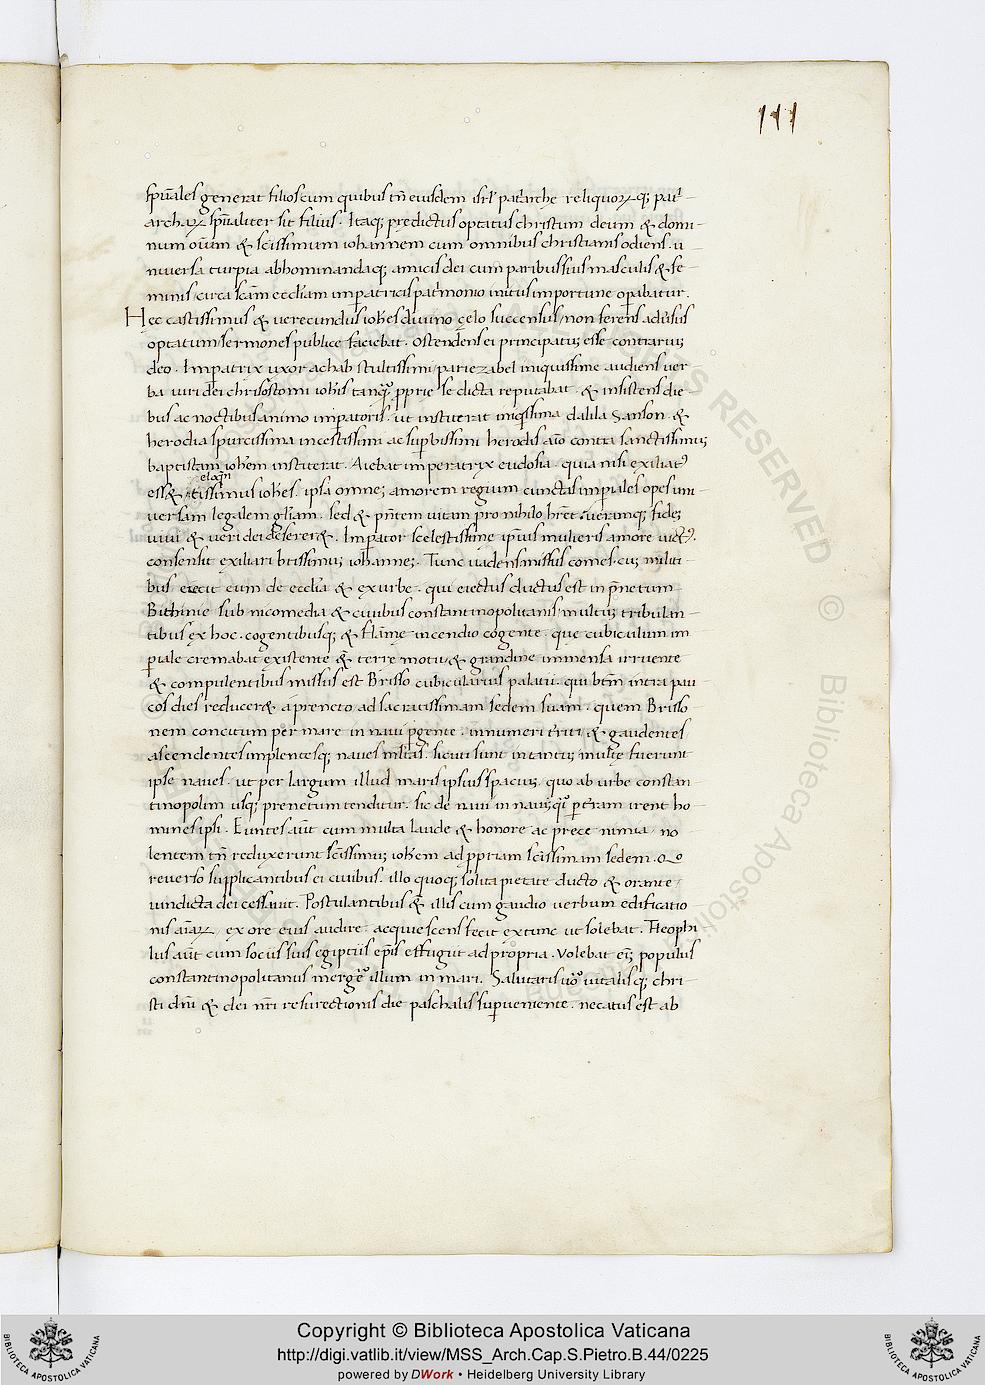 111
spūales generat filios cum quibus tn̄ eiusdem isrl̄ patrarche reliquoꝝ q; pat
archaꝝ spūaliter sit filius. Itaq; predictus optatus christum deum & domi
num oūm & scīssimum iohannem cum omnibus christianis odiens. u
niuersa turpia abhominandaq; amicis dei cum paribus suis masculis & fe
minis circa scām eccl̄iam imꝑatricis patrimonio initus importune oꝑabatur.
Hec castissimus & uerecundus ioh̄es diuino çelo succensus / non ferens aduersus
optatum sermones publice faciebat. Ostendens ei principatus esse contrarius
deo. Imꝑatrix uxor achab stultissimi par iezabel iniquissime audiens uer
ba uiri dei chrisostomi ioh̄is tanq̄ ꝓprie se dicta reputabat. & insistens die
bus ac noctibus animo imꝑatoris. ut institerat iniq̄ssima dalila Sanson. &
herodia spurcissima incestissimi ac suꝑbissimi herodis aīo contra sanctissimum
baptistam ioh̄em institerat. Aiebat imperatrix eudosia. quia nisi exiliat
ess& eloq̄n tissimus ioh̄es. ipsa omnes amorem regium cunctas imꝑiales opes uni
uersam legalem gl̄iam. sed & pn̄tem uitam pro nihilo hr̄et ueramq; fides
uiui & ueri dei deserer&. Imꝑator scelestissime ipsius mulieris amore uict9.
consensit exiliari btissimus iohannes. Tunc uadens missus comes. cuz militi
bus eiecit eum de eccl̄ia & ex urbe. qui eiectus ductus est in p̄netum
Bithinie sub nicomedia & ciuibus constantinopolitanis multum tribulan
tibus ex hoc. cogentibusq; & flām̄ę incendio cogente. que cubiculum im
ꝑiale cremabat existente & terre motu & grandine immensa irruente
& compulentibus missus est Brisso cubicularius palatii. qui btm̄ intra pau
cos dies reducer& a preneto ad sacratissimam sedem suam. quem Brisso
nem concitum per mare in naui ꝑgente. innumeri uiri & gaudentes
ascendentes implentesq; naues multas. sicuti sunt in tantum multe fuerunt
ipse naues. ut per largum illud maris ipsius spacium. quo ab urbe constan
tinopolim usq; prenetum tenditur. sic de naui in nauim q̄si ꝑ terram irent ho
mines ipsi. Euntes aūt cum multa laude & honore ac prece nimia. no
lentem tn̄ reduxerunt scīssimum ioh̄em ad ꝓpriam scīssimam sedem. Qo
reuerso supplicantibus ei ciuibus. illo quoq; solita pietate ducto & orante
uindicta dei cessauit. Postulantibus & illis cum gaudio uerbum edificatio
nis aīaꝝ ex ore eius audire. acquiescens fecit ex tunc ut solebat. Theophi
lus aūt cum sociis suis egiptiis ep̄is effugiit ad propria. Volebat eī; populus
constantinopolitanus mergere illum in mari. Salutaris uō uitalisq; chri
sti dn̄i & dei nr̄i resurectionis die paschalis suꝑueniente. necatus est ab
ALL RIGHTS RESERVED © Biblioteca Apostolica Vaticana
Copyright © Biblioteca Apostolica Vaticana
http://digi.vatlib.it/view/MSS_Arch.Cap.S.Pietro.B.44/0225
powered by DWork • Heidelberg University Library
BIBLIOTECA APOSTOLICA VATICANA
BIBLIOTECA APOSTOLICA VATICANA